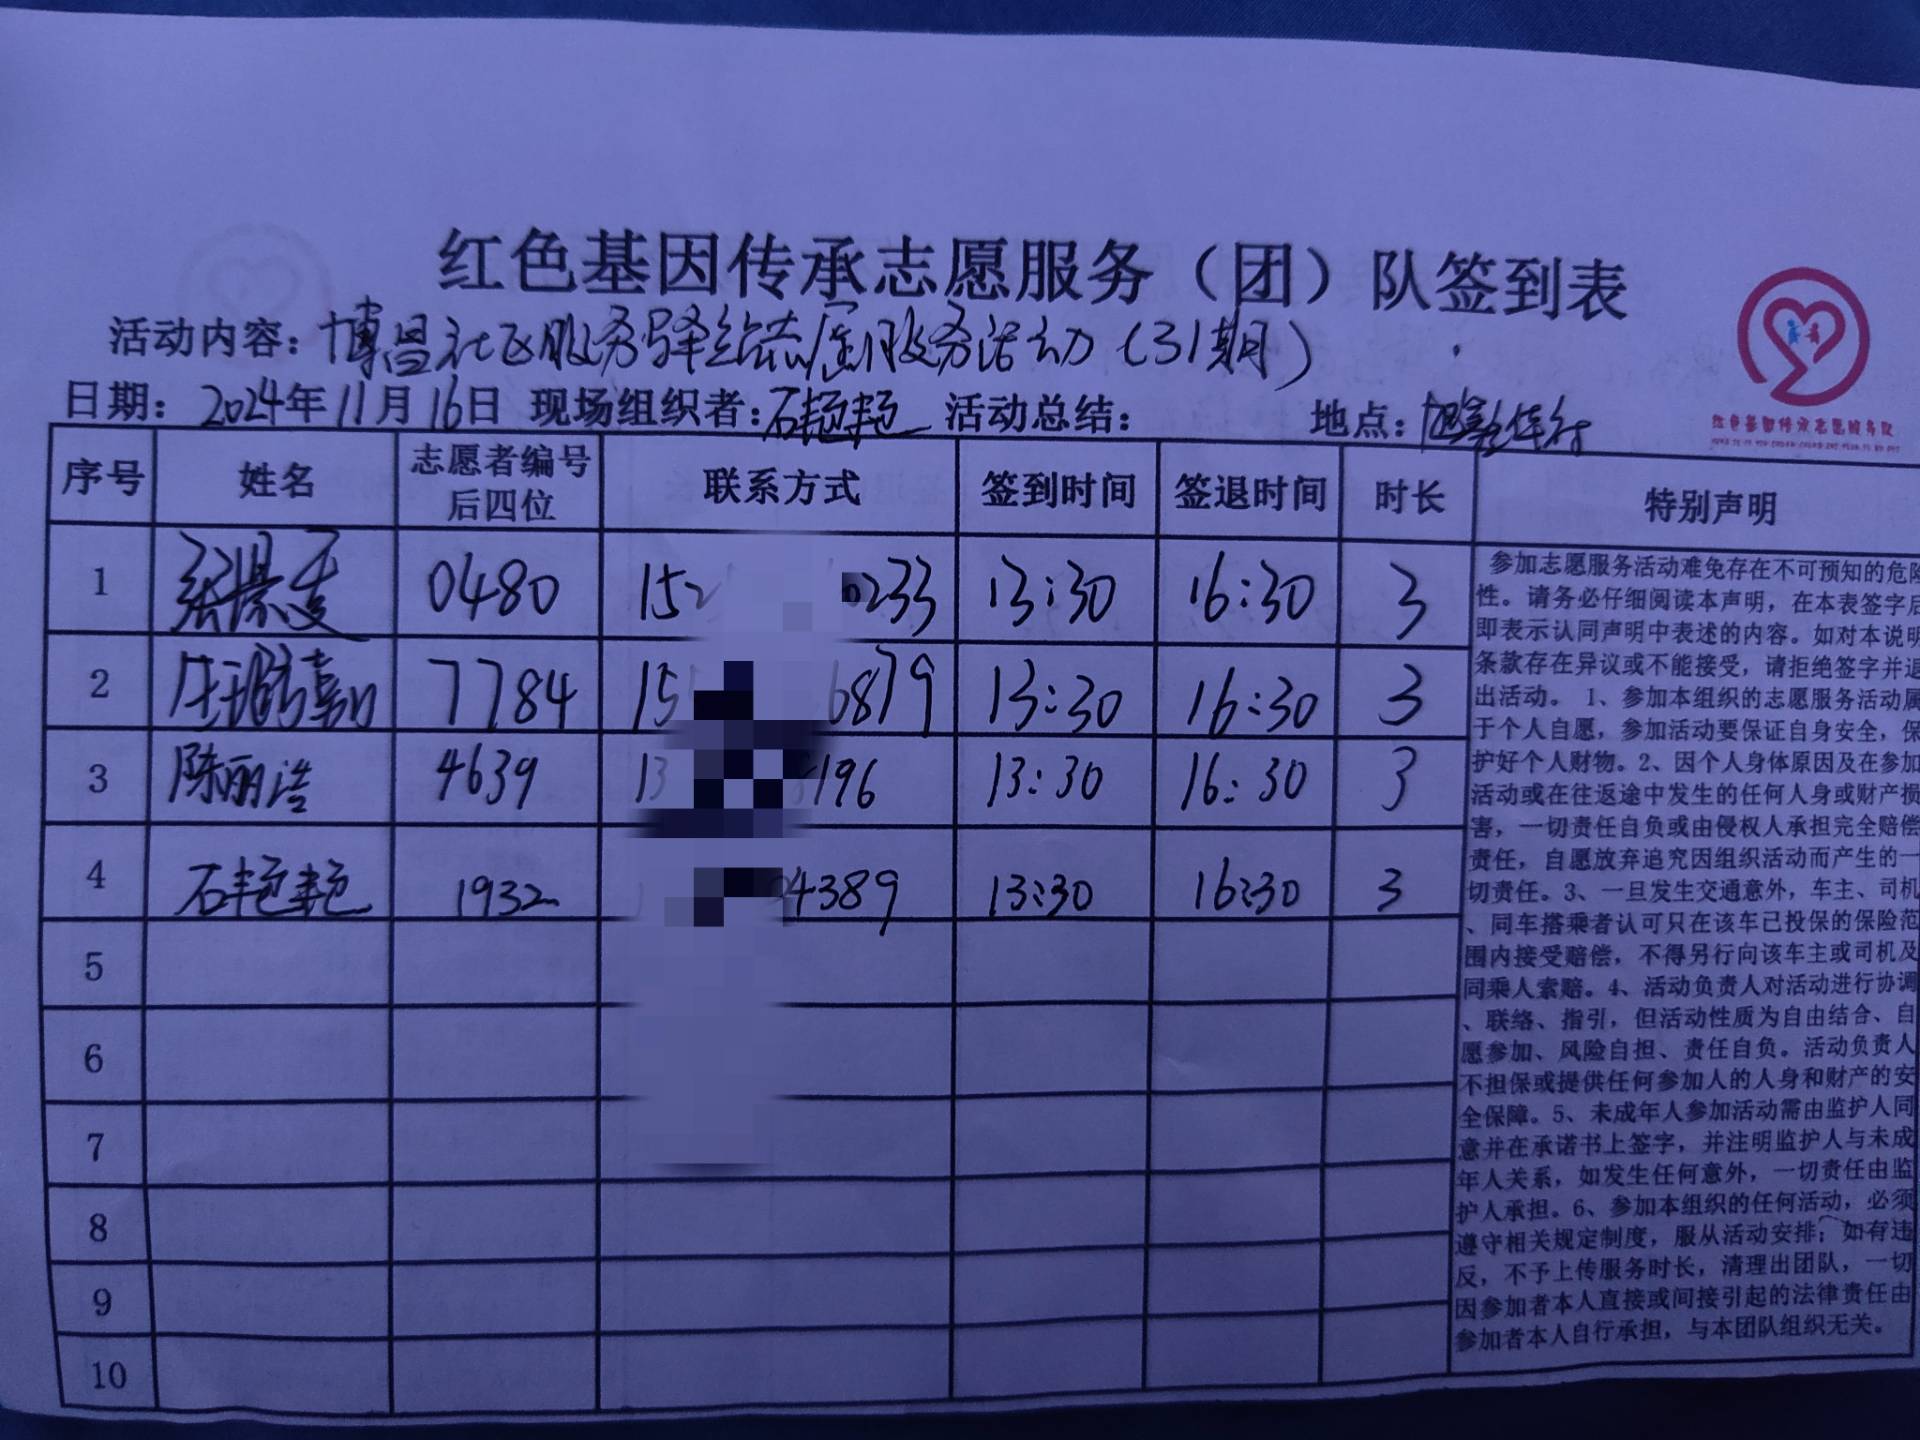 红色基因传承志愿服务（团）队签到表
活动内容：博昌社区服务驿站志愿服务活动（31期）
日期：2024年11月16日 现场组织者：石艳艳 活动总结： 地点：
红色基因传承志愿服务队
序号 姓名 志愿者编号后四位 联系方式 签到时间 签退时间 时长 特别声明
1 张景 0480 152 0233 13:30 16:30 3
2 7784 15 6879 13:30 16:30 3
3 陈丽浩 4639 13 8196 13:30 16:30 3
4 石艳艳 1932 4389 13:30 16:30 3
5
6
7
8
9
10
参加志愿服务活动难免存在不可预知的危险
性。请务必仔细阅读本声明，在本表签字后
即表示认同声明中表述的内容。如对本说明
条款存在异议或不能接受，请拒绝签字并退
出活动。1、参加本组织的志愿服务活动属
于个人自愿，参加活动要保证自身安全，保
护好个人财物。2、因个人身体原因及在参加
活动或在往返途中发生的任何人身或财产损
害，一切责任自负或由侵权人承担完全赔偿
责任，自愿放弃追究因组织活动而产生的一
切责任。3、一旦发生交通意外，车主、司机
、同车搭乘者认可只在该车已投保的保险范
围内接受赔偿，不得另行向该车主或司机及
同乘人索赔。4、活动负责人对活动进行协调
、联络、指引，但活动性质为自由结合、自
愿参加、风险自担、责任自负。活动负责人
不担保或提供任何参加人的人身和财产的安
全保障。5、未成年人参加活动需由监护人同
意并在承诺书上签字，并注明监护人与未成
年人关系，如发生任何意外，一切责任由监
护人承担。6、参加本组织的任何活动，必须
遵守相关规定制度，服从活动安排；如有违
反，不予上传服务时长，清理出团队，一切
因参加者本人直接或间接引起的法律责任由
参加者本人自行承担，与本团队组织无关。